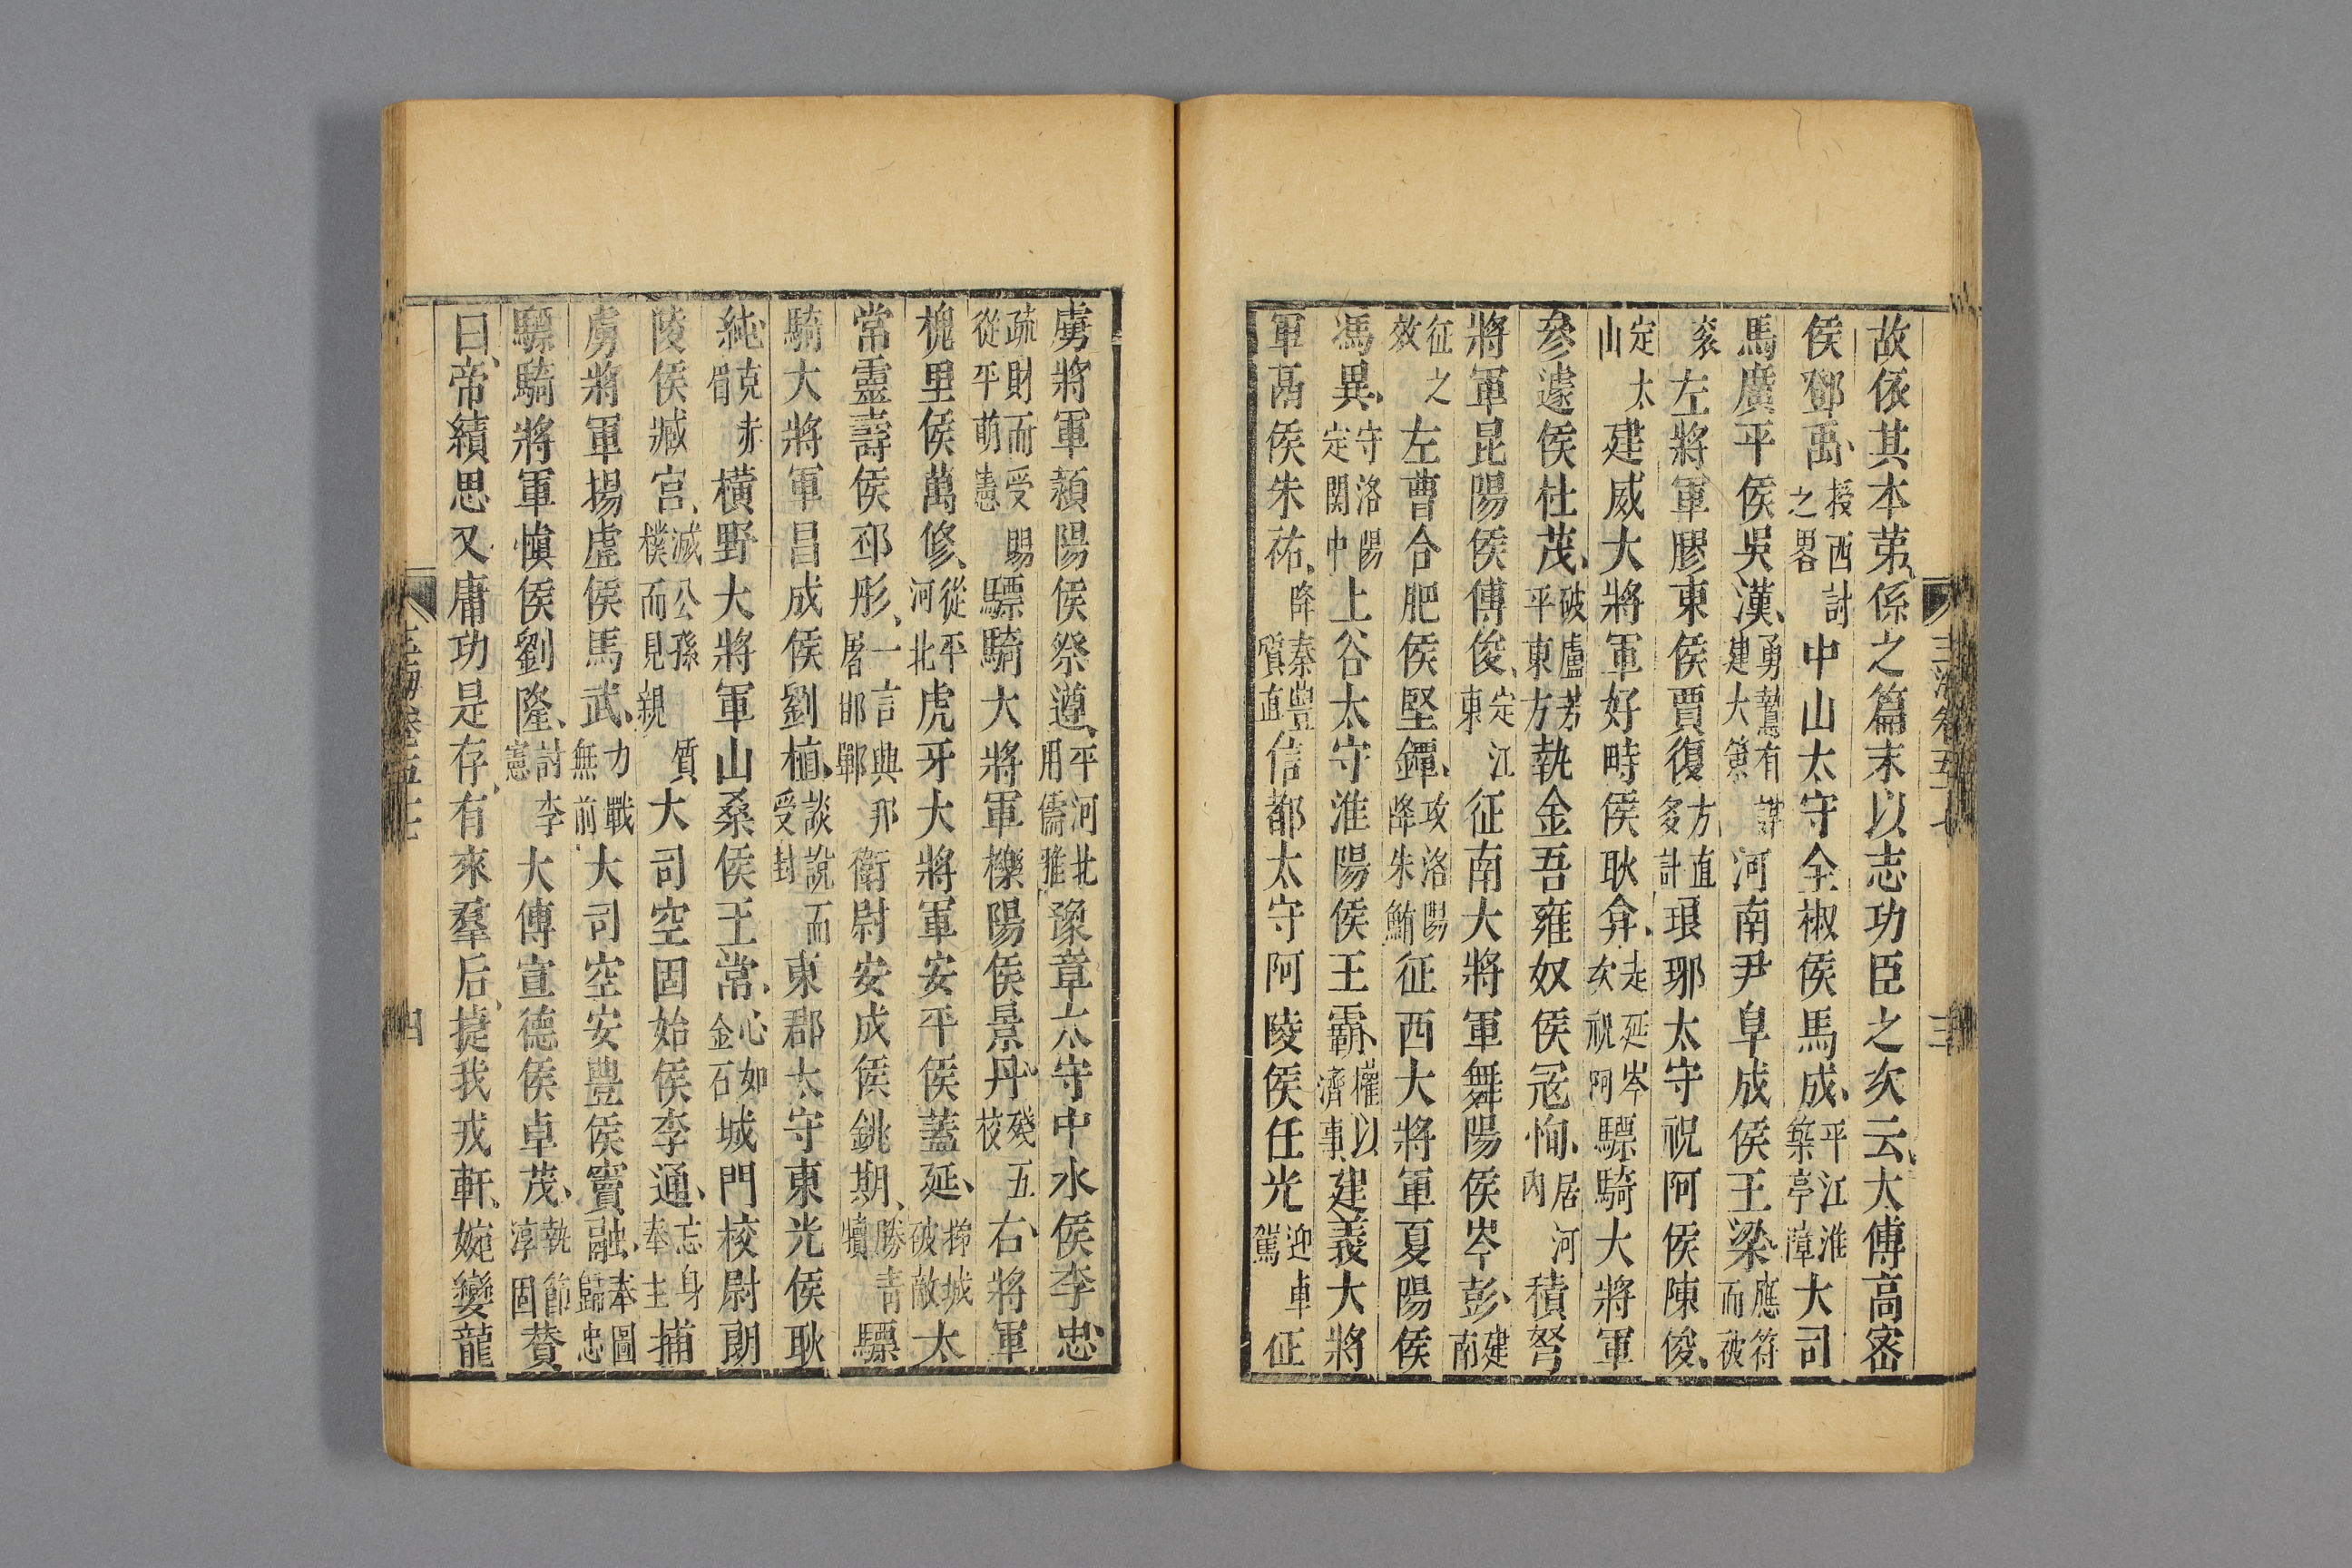 故依其本苐係之篇末以志功臣之次云太傅高密
侯鄧禹授西討之畧中山太守全椒侯馬成平江淮築亭障大司
馬廣平侯吳漢勇鷙有謀建大策河南尹阜成侯王梁應符而被
衮左將軍膠東侯賈復方直多計琅邪太守祝阿侯陳俊
定太山建威大將軍好畤侯耿弇走延岑次祝阿驃騎大將軍
參蘧侯杜茂破盧芳平東方執金吾雍奴侯冦恂居河內積弩
將軍昆陽侯傅俊定江東征南大將軍舞陽侯岑彭建南
征之效左曹合肥侯堅鐔攻洛陽降朱鮪征西大將軍夏陽侯
馮異守洛陽定関中上谷太守淮陽侯王霸權以濟事建義大將
軍鬲侯朱祐降秦豊質直信都太守阿陵侯任光迎車駕征
虜將軍潁陽侯祭遵平河北用儒雅豫章太守中水侯李忠
疏財而受賜從平萌憲驃騎大將軍櫟陽侯景丹殘五校右將軍
槐里侯萬修從平河北虎牙大將軍安平侯蓋延梯城破敵太
常靈壽侯邳彤一言興邦屠邯鄲衛尉安成侯銚期勝青犢驃
騎大將軍昌成侯劉植談說而受封東郡太守東光侯耿
純克赤眉橫野大將軍山桑侯王常心如金石城門校尉朗
陵侯臧宮滅公孫質樸而見親大司空固始侯李通忘身奉主捕
虜將軍揚虛侯馬武力戰無前大司空安豐侯竇融奉圖歸忠
驃騎將軍愼侯劉隆討李憲大傅宣德侯卓茂執節淳固贊
曰帝績思乂庸功是存有來羣后捷我戎軒婉孌龍